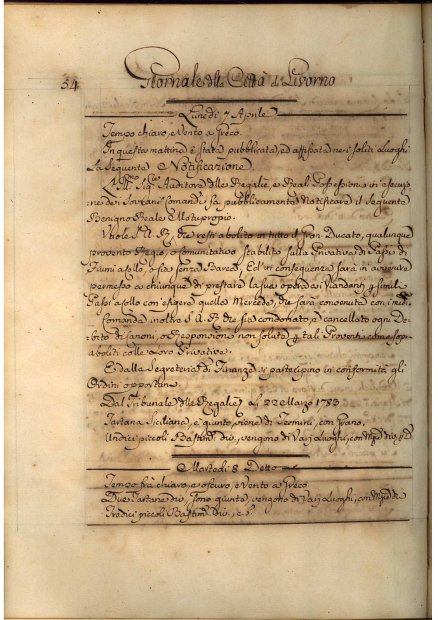 54
Giornale della Città di Livorno
Lunedì 7 Aprile
Tempo chiaro, e Vento a Greco.
In questa mattina è stata pubblicata, ed affissata nei soliti Luoghi
La Seguente Notificazione
L'Ill.mo Sig.re Auditore delle Regalie, e Reali Possessioni in esecuzio
ne dei Sovrani Comandi fa pubblicamente Notificare il Seguente
Benigno Reale Motuproprio.
Vuole S. A. R. che resti abolito in tutto il Gran Ducato, qualunque
provento Regio, o Comunitativo stabilito sulla Privativa di Passi di
Fiumi a Collo, o sia senza Barca, Ed in conseguenza sarà in avvenire
permesso a chiunque di prestare la sua opera ai Viandanti simil
Passi a Collo con esigere quella Mercede, che sarà convenuta con i med.
Comanda inoltre S. A. R. che sia condonato, e cancellato ogni De-
bito di Canoni, o Responsione non soluta tali Proventi come sop.a
aboliti colle Loro Privative.
E dalla Segreteria di Finanze si partecipino in conformità gli
Ordini opportuni.
Dal Tribunale delle Regalie Li 22 Marzo 1783
Tartana Siciliana, è giunta, viene di Termini, con Grano.
Undici piccoli Bastim. div., vengono di Varj Luoghi, con
Martedì 8 Detto
Tempo frà chiaro, e oscuro, e Vento a Greco.
Due Tartane div., sono giunte, vengono di Varj Luoghi, con
Tredici piccoli Bastim. div., e